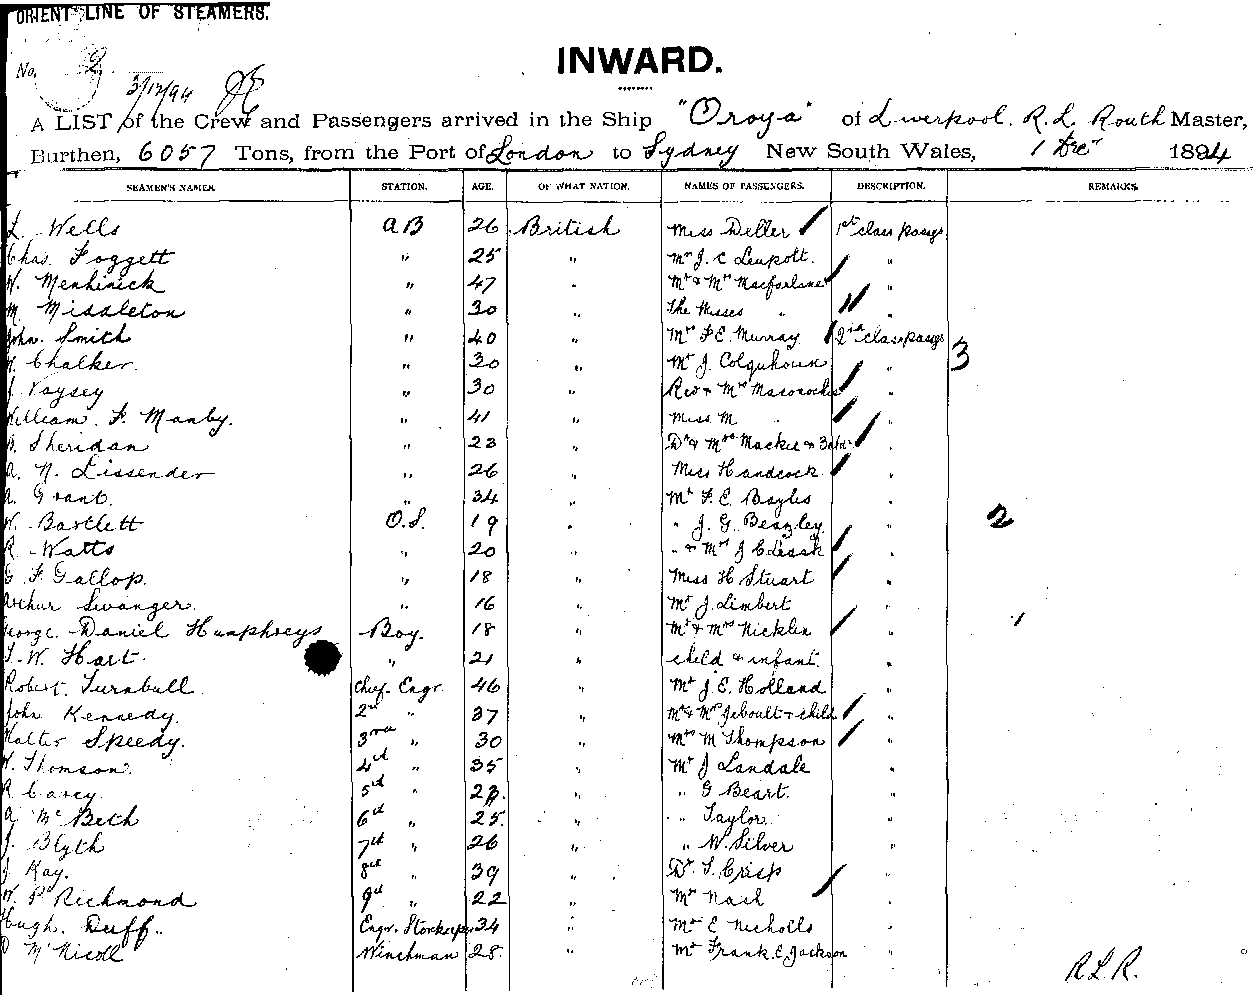 ORIENT LINE OF STEAMERS.
No. 2
3/12/94
INWARD.
A LIST of the Crew and Passengers arrived in the Ship "Oroya" of Liverpool. R. L. Routh Master,
Burthen, 6057 Tons, from the Port of London to Sydney New South Wales, 1 Dec 1894
SEAMEN'S NAMES. STATION. AGE. OF WHAT NATION. NAMES OF PASSENGERS. DESCRIPTION. REMARKS.
L. Wells AB 26 British Miss Deller 1st class passgs
Chas. Foggett " 25 " Mr J. C Leupolt. "
W. Menhinick " 47 " Mr & Mrs Macfarlane "
M. Middleton " 30 " The Misses " "
John. Smith " 40 " Mrs F E. Murray 2nd class passgs
Chalker. " 30 " Mr J. Colquhoun " 3
J. Vaysey " 30 " Rev & Mrs "
William. F. Manby. " 41 " Miss M " "
Sheridan " 23 " Dr & Mrs Mackie & "
A. N. Lissender " 26 " Miss Handcock "
A. Grant. " 34 " Mr F. E. Bayles "
W. Bartlett O.S. 19 " " J. G. Beazley " 2
R. Watts " 20 " " & Mrs J C "
G F Gallop. " 18 " Miss H Stuart "
Arthur Swanger. " 16 " Mr J. Limbert "
George. Daniel Humphreys Boy. 18 " Mr & Mrs Nicklin "
W. Hart. " 21 " child & infant. "
Robert. Turnbull Chief. Engr. 46 " Mr J. E. Holland "
John Kennedy. 2nd " 37 " Mr & Mrs Jeboult & child "
Walter Speedy. 3rd " 30 " Mrs M Thompson "
W. Thomson. 4th " 35 " Mr J Landale "
R Carey 5th " 23. " " G Beart. "
A Mc Beth 6th " 25. " " Taylor. "
J. Blyth 7th " 26 " " W. Silver "
J Kay. 8th " 39 " Dr. T. Crisp "
W. P Richmond 9th " 22 " Mr Nash "
Hugh. Duff. Engr. Storkeepr 34 " Mr E Nicholls "
Mc Nicoll Winchman 28. " Mr Frank. E. Jackson "
R L R.